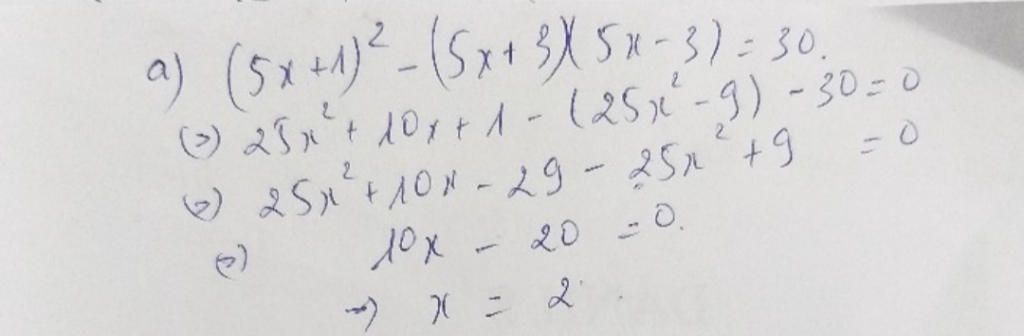 a) (5x+1)² - (5x+3)(5x-3) = 30.
(=) 25x² + 10x + 1 - (25x² - 9) - 30 = 0
(=) 25x² + 10x - 29 - 25x² + 9 = 0
(=) 10x - 20 = 0.
=) x = 2.